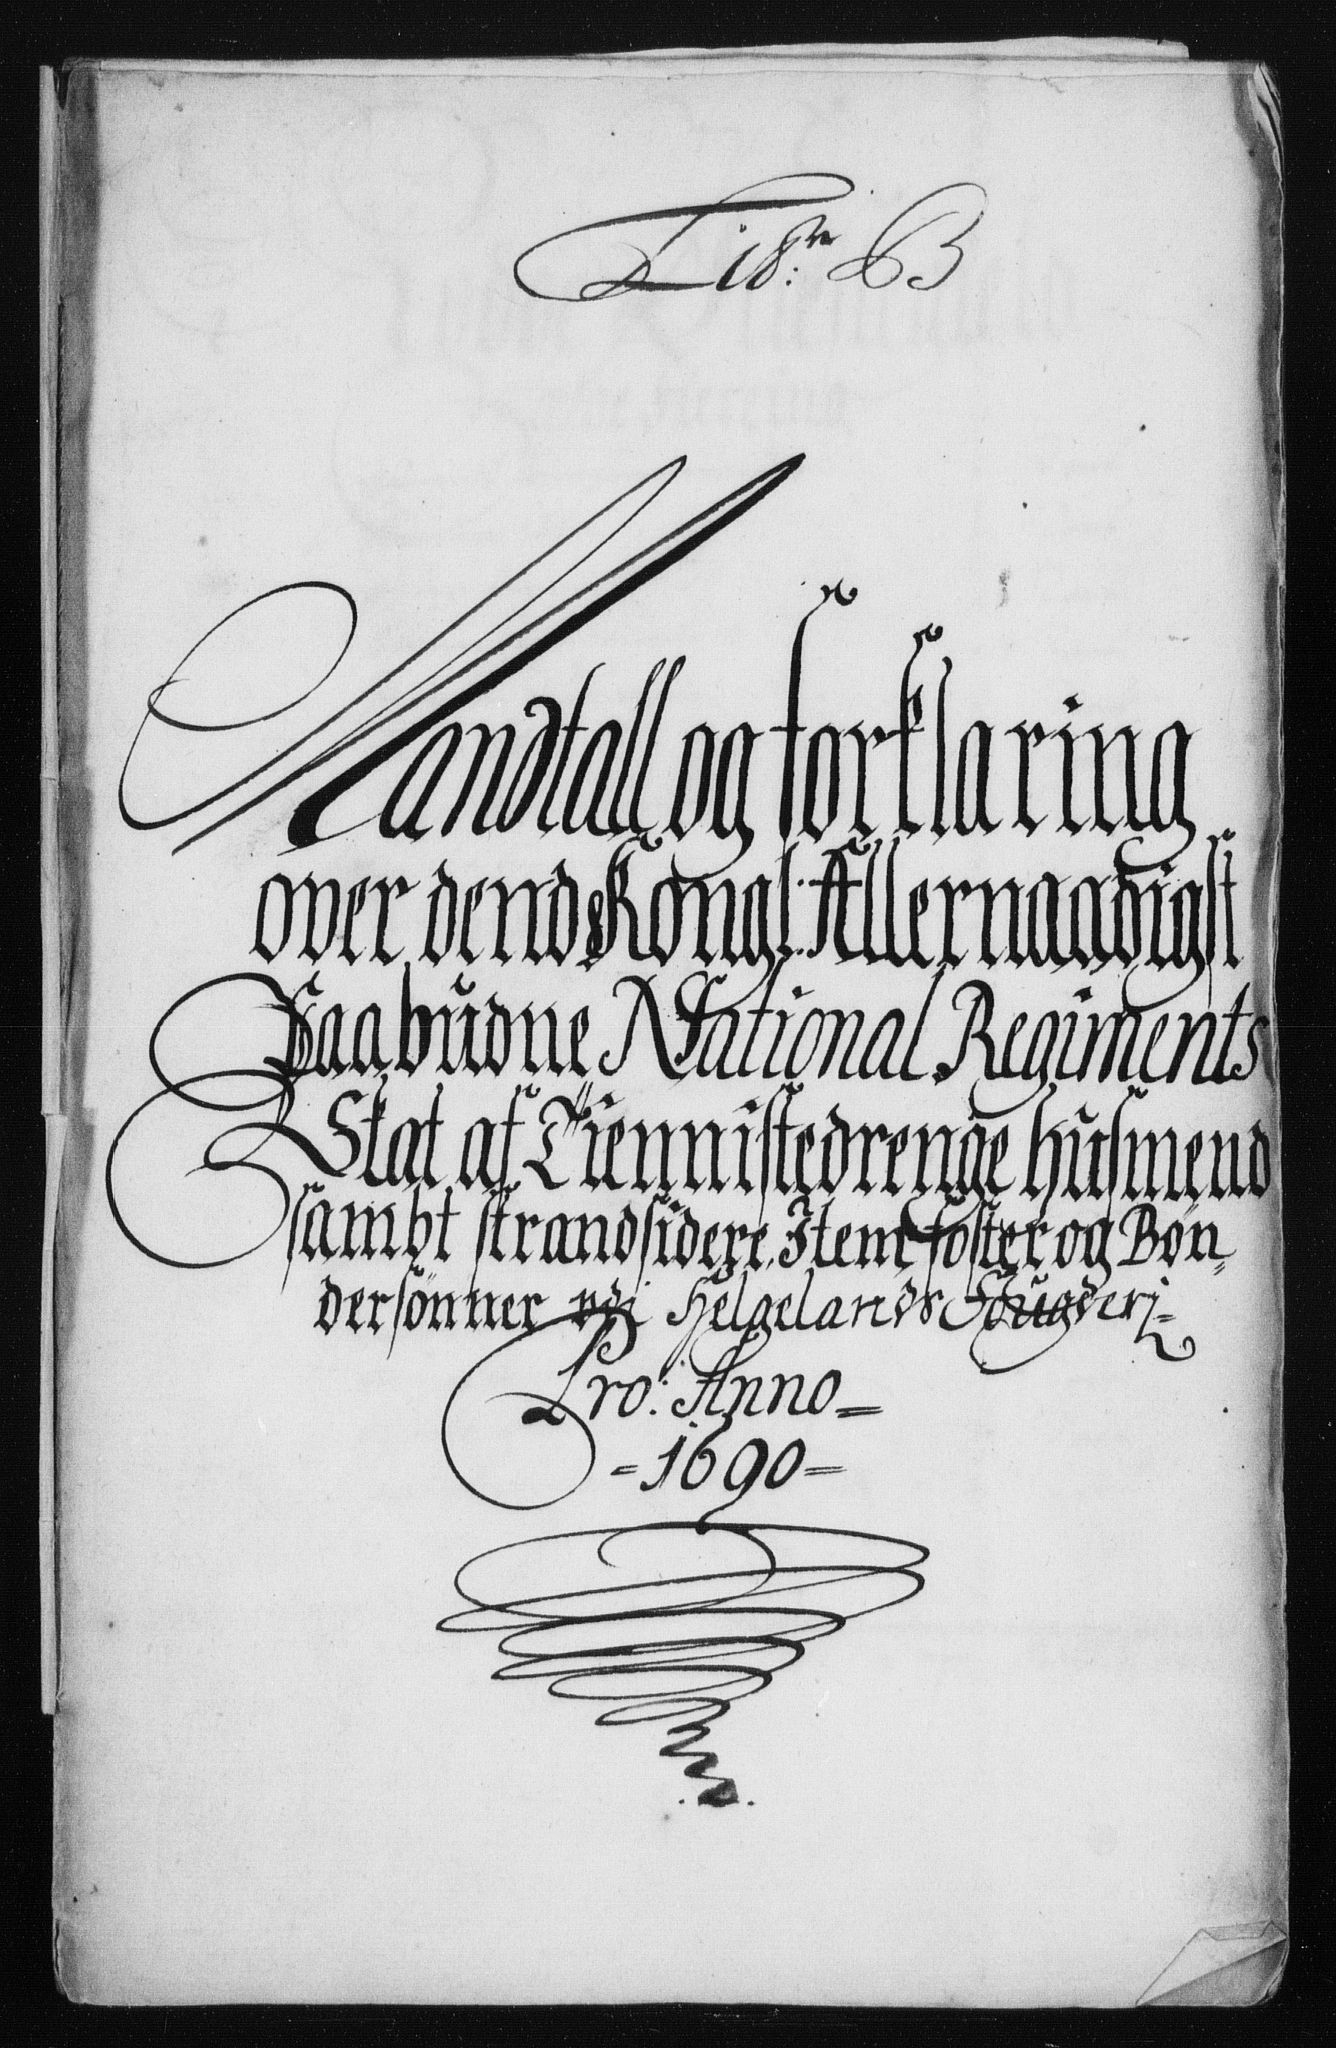 Litr: B
Mandtall og forklaring
over dend Kongl: Allernaadigst
Paabudne National Regiments
Skat af Tiennistedrenge husmend
sambt strandsidere, Item foster og Bøn„
dersønner udi Helgelands Fougderj=
Pro: Anno=
=1690=